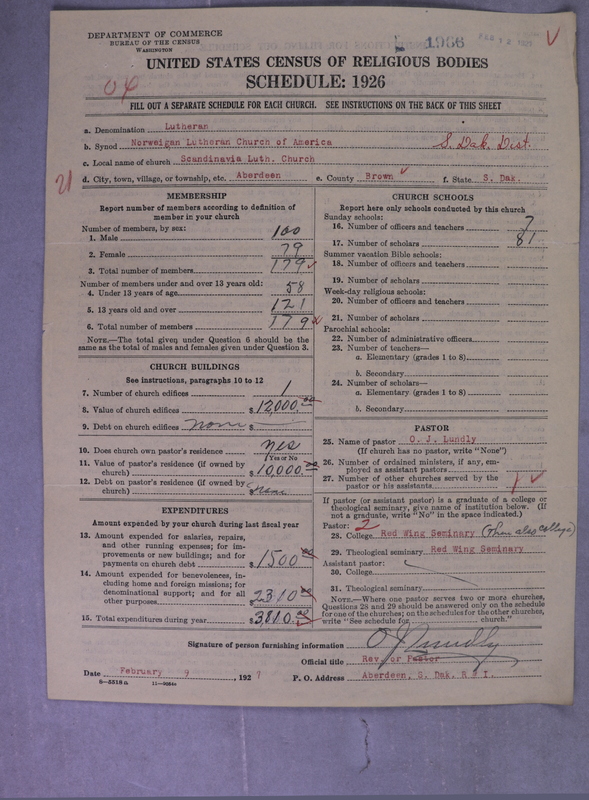 DEPARTMENT OF COMMERCE
BUREAU OF THE CENSUS
WASHINGTON
1966
UNITED STATES CENSUS OF RELIGIOUS BODIES
SCHEDULE: 1926
FILL OUT A SEPARATE SCHEDULE FOR EACH CHURCH. SEE INSTRUCTIONS ON THE BACK OF THIS SHEET
a. Denomination Lutheran
b. Synod Norweigan Lutheran Church of America S. Dak. Dist.
c. Local name of church Scandinavia Luth. Church
21 d. City, town, village, or township, etc. Aberdeen e. County Brown f. State S. Dak.
MEMBERSHIP
Report number of members according to definition of member in your church
Number of members, by sex:
1. Male 100
2. Female 79
3. Total number of members 179
Number of members under and over 13 years old:
4. Under 13 years of age 58
5. 13 years old and over 121
6. Total number of members 179
NOTE.—The total given under Question 6 should be the same as the total of males and females given under Question 3.
CHURCH BUILDINGS
See instructions, paragraphs 10 to 12
7. Number of church edifices 1
8. Value of church edifices $ 12,000.00
9. Debt on church edifices none $
10. Does church own pastor's residence yes
(Yes or No)
11. Value of pastor's residence (if owned by church) $ 10,000.00
12. Debt on pastor's residence (if owned by church) $ none
EXPENDITURES
Amount expended by your church during last fiscal year
13. Amount expended for salaries, repairs, and other running expenses; for improvements or new buildings; and for payments on church debt $ 1500.00
14. Amount expended for benevolences, including home and foreign missions; for denominational support; and for all other purposes $ 2310.00
15. Total expenditures during year $ 3,810.00
CHURCH SCHOOLS
Report here only schools conducted by this church
Sunday schools:
16. Number of officers and teachers 7
17. Number of scholars 81
Summer vacation Bible schools:
18. Number of officers and teachers
19. Number of scholars
Week-day religious schools:
20. Number of officers and teachers
21. Number of scholars
Parochial schools:
22. Number of administrative officers
23. Number of teachers—
a. Elementary (grades 1 to 8)
b. Secondary
24. Number of scholars—
a. Elementary (grades 1 to 8)
b. Secondary
PASTOR
25. Name of pastor O. J. Lundly
(If church has no pastor, write "None")
26. Number of ordained ministers, if any, employed as assistant pastors
27. Number of other churches served by the pastor or his assistants 1
If pastor (or assistant pastor) is a graduate of a college or theological seminary, give name of institution below. (If not a graduate, write "No" in the space indicated.)
Pastor: 2
28. College Red Wing Seminary (then also college)
29. Theological seminary Red Wing Seminary
Assistant pastor:
30. College
31. Theological seminary
NOTE.—Where one pastor serves two or more churches, Questions 28 and 29 should be answered only on the schedule for one of the churches; on the schedules for the other churches, write "See schedule for church."
Signature of person furnishing information O J Lundly
Official title Rev. or Pastor
Date February 9, 1927 P. O. Address Aberdeen, S. Dak. R # I.
8—5318a 11—9664a